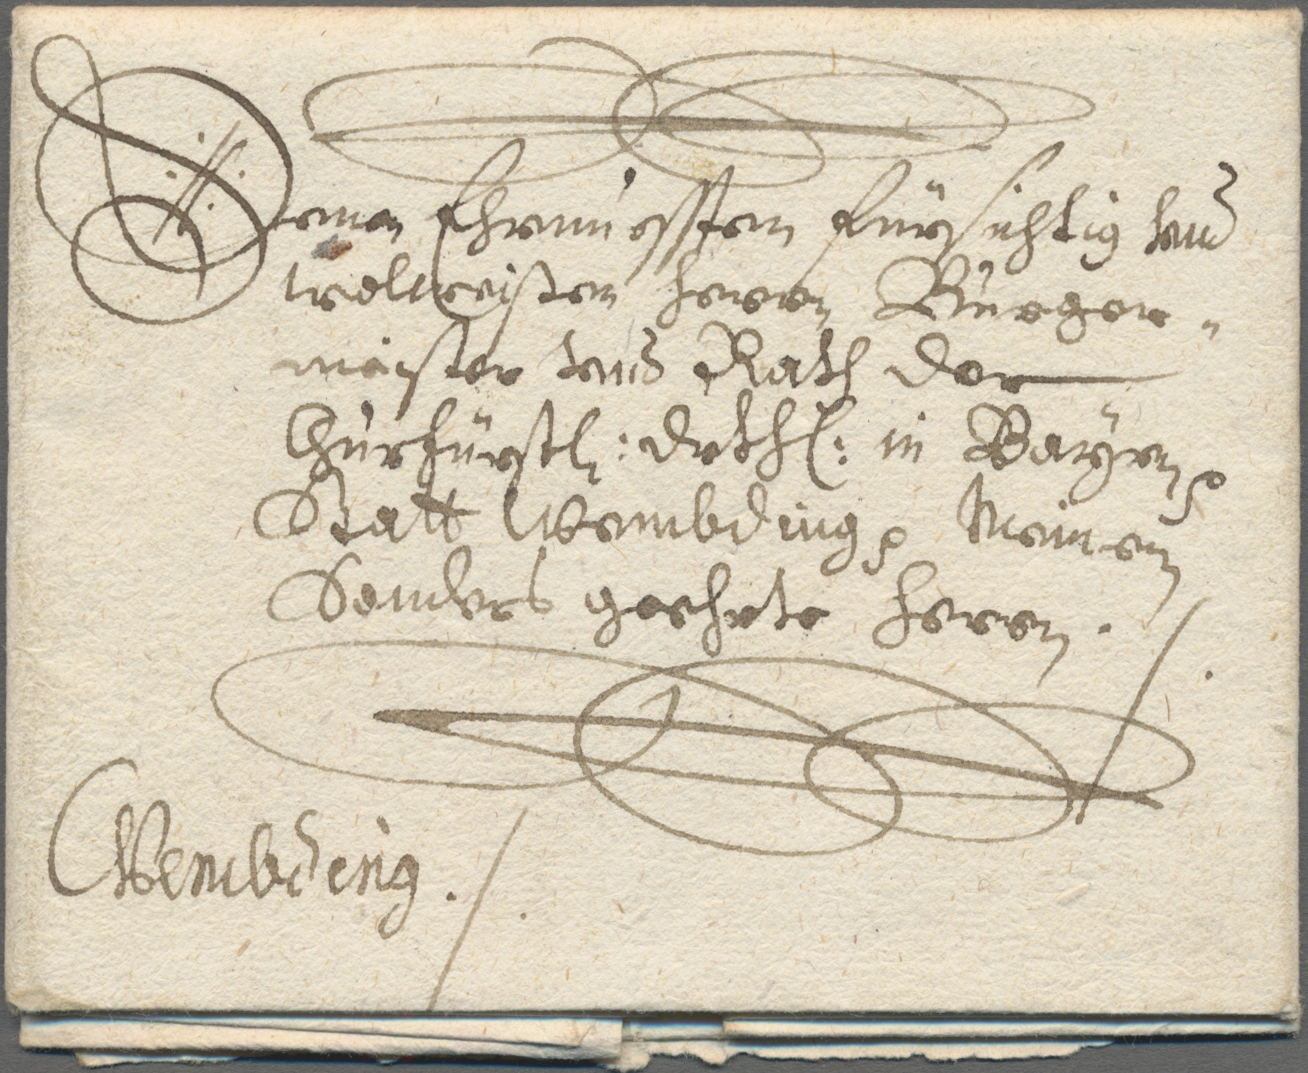 Denen Ehrnuesten Fürsichtig vnd
wolweisen herrn Bürger=
maister vnd Rath der
Churfürstl: drthl: in Bayrn
Statt Wembding, Meinen
Sonders geehrte herrn.
Wembding.